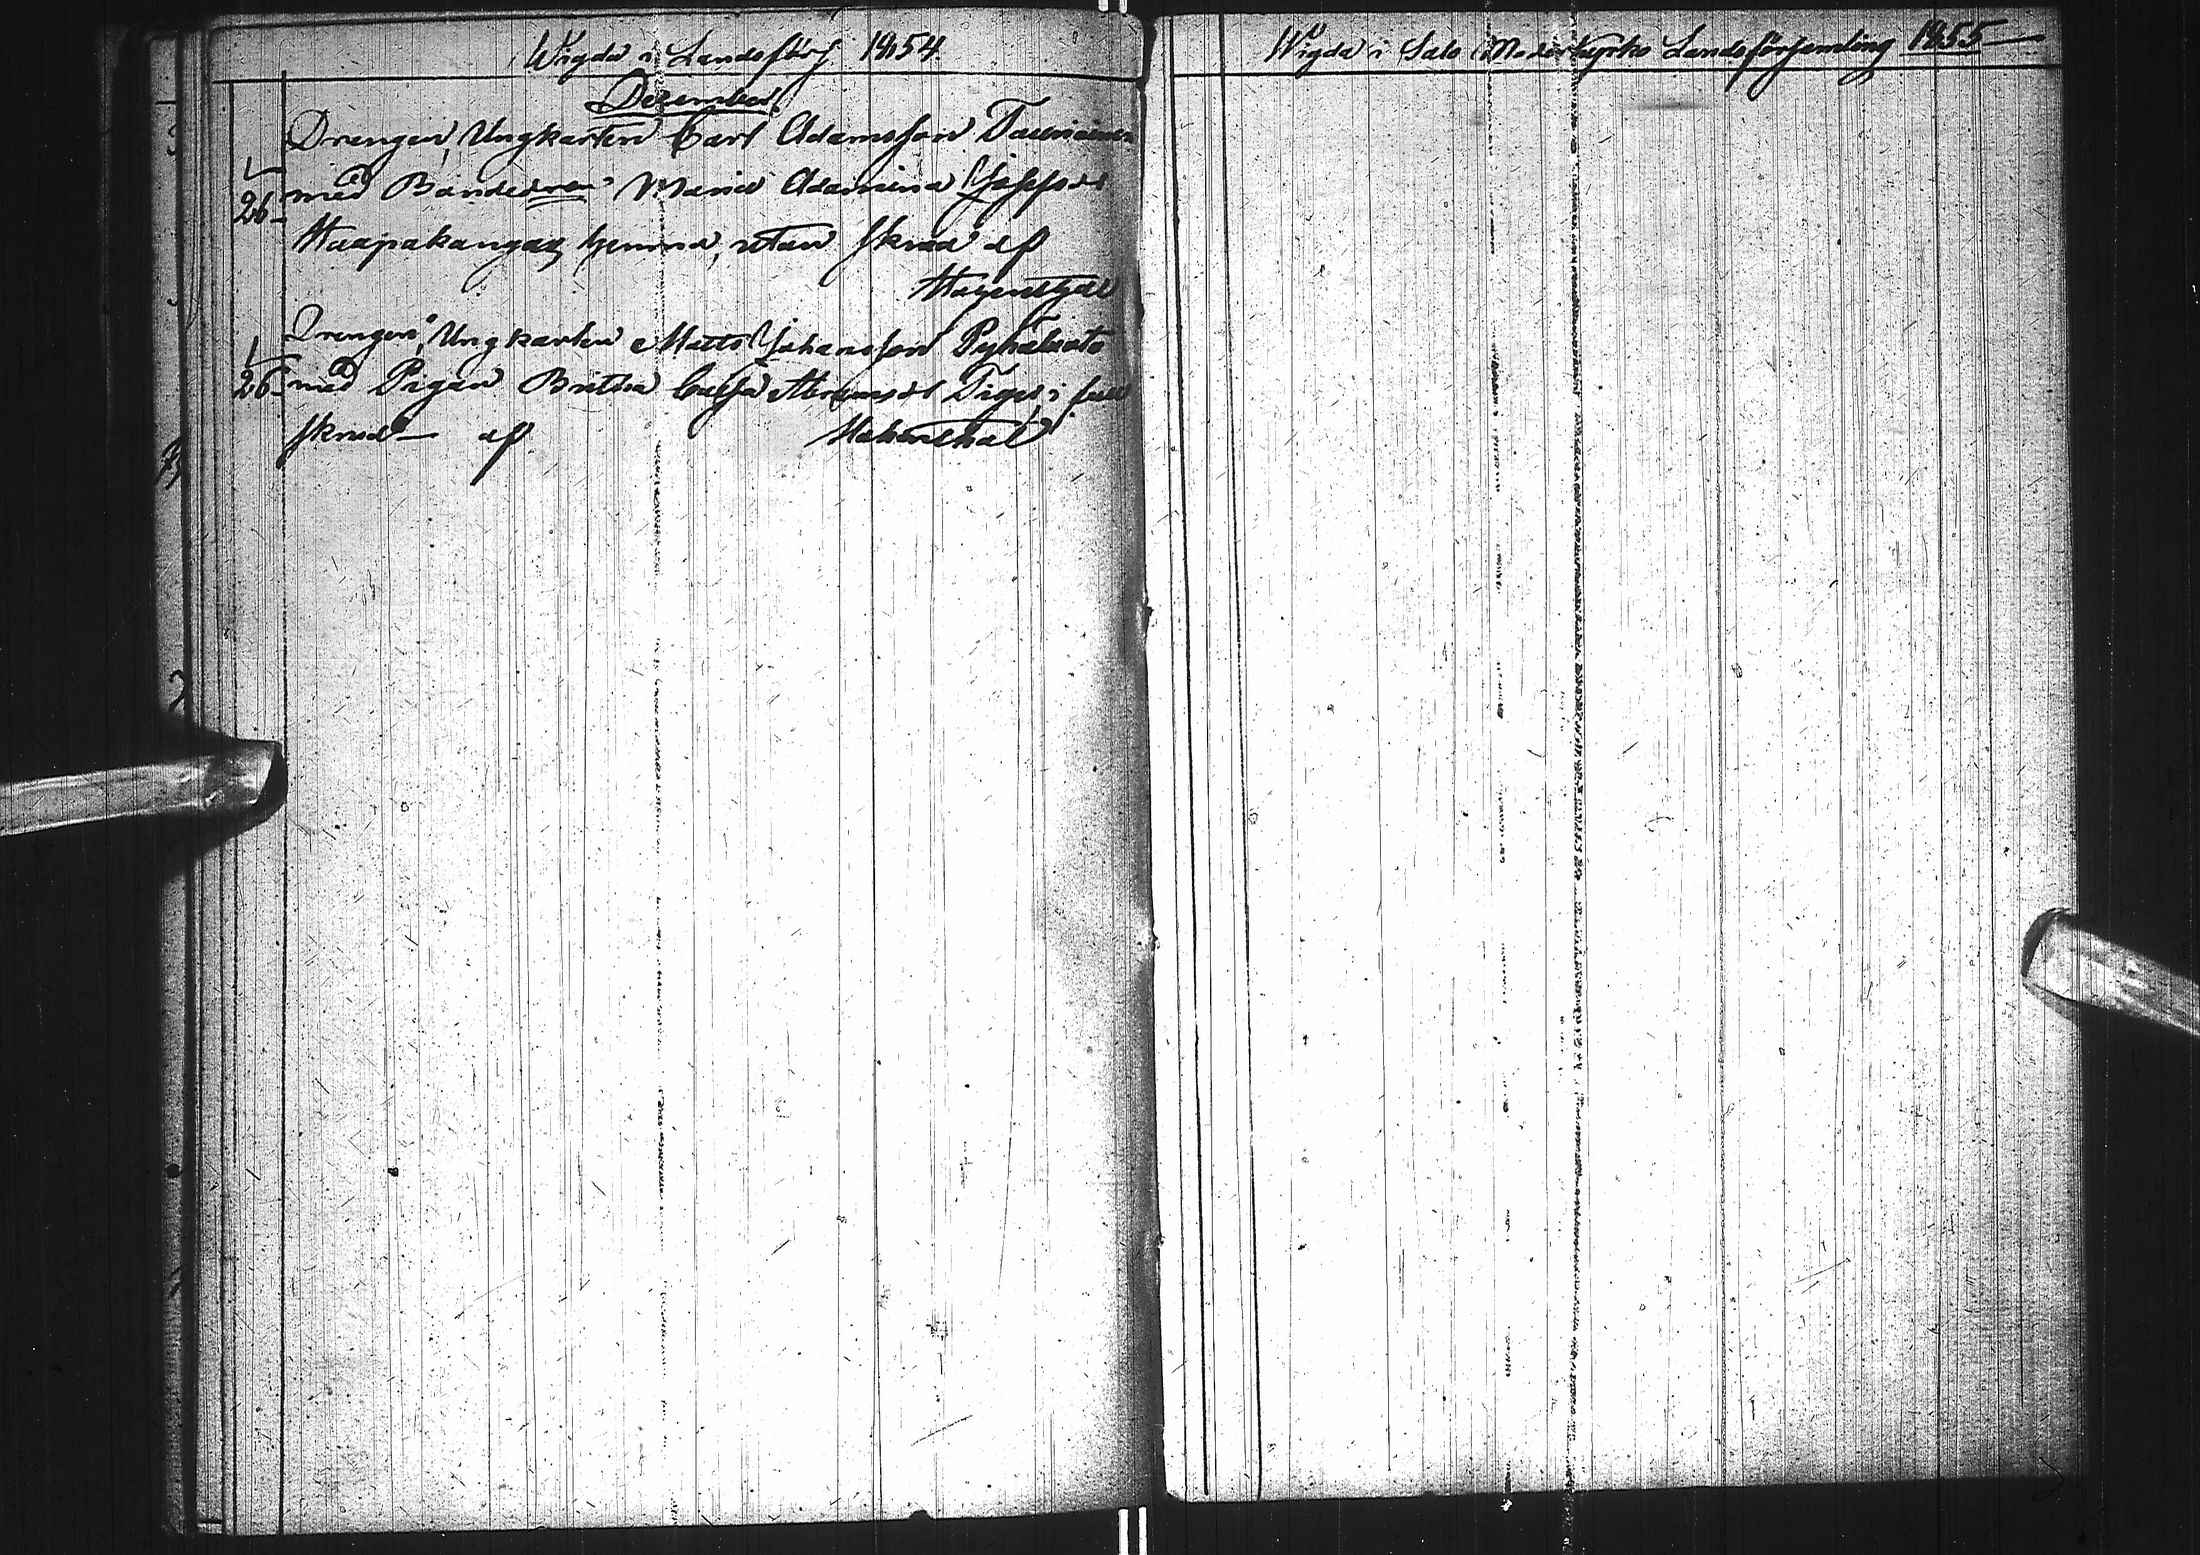 Wigda i Landsförs 1854.
December
Drengen, Ungkarlen Carl Adamsson Tauriainen
26 med Bondedren Maria Adamina Josefsdr
Haapakangas hemma, utan skrud af

Drengen, Ungkarlen Matts Johansson Pyhäluoto
26 med Pigan Britha Cajsa Abramsdr i full
skrud — af
Wigda i Salo Moderkyrko Landsförsamling 1855 —